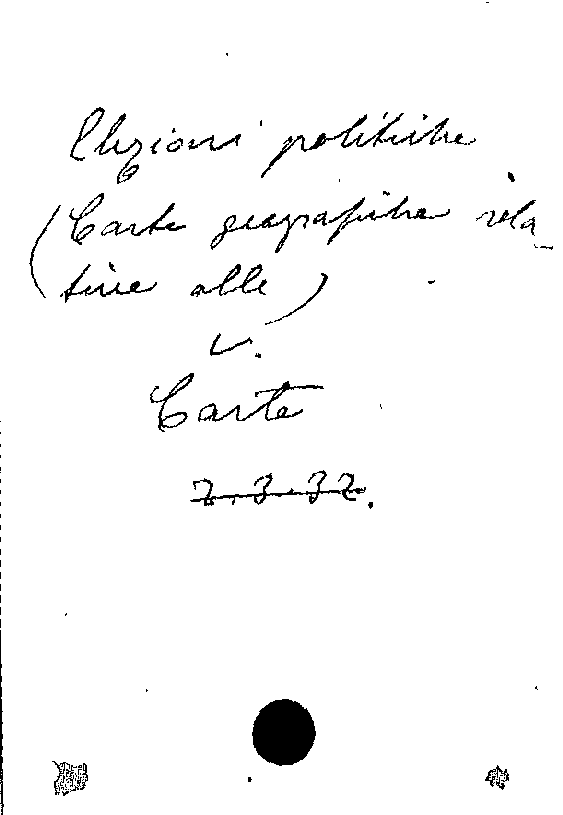 Elezioni politiche
(Carte geografiche rela-
tive alle)
v.
Carte
2.3.32.